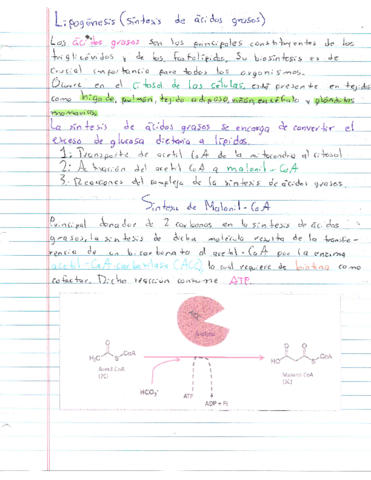 Lipogénesis (síntesis de ácidos grasos)
Los ácidos grasos son los principales constituyentes de los
triglicéridos y de los fosfolípidos. Su biosíntesis es de
crucial importancia para todos los organismos.
Ocurre en el citosol de las células, está presente en tejidos
como hígado, pulmón, tejido adiposo, riñón, encéfalo y glándulas
mamarias.
La síntesis de ácidos grasos se encarga de convertir el
exceso de glucosa dietaria a lípidos.
1: Transporte de acetil CoA de la mitocondria al citosol
2: Activación del acetil CoA a malonil-CoA
3. Reacciones del complejo de la síntesis de ácidos grasos.
Síntesis de Malonil-CoA
Principal donador de 2 carbonos en la síntesis de ácidos
grasos, la síntesis de dicha molécula resulta de la transfe-
rencia de un bicarbonato al acetil-CoA por la enzima
acetil-CoA carboxilasa (ACC), lo cual requiere de biotina como
cofactor. Dicha reacción consume ATP.
Biotina
O
H₃C
SCoA
Acetil CoA
(2C)
HCO₃⁻
ATP
ADP + Pi
O
O
HO
SCoA
Malonil CoA
(3C)